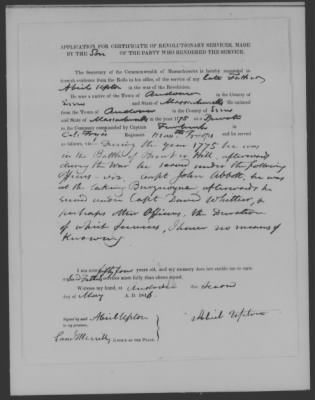 APPLICATION FOR CERTIFICATE OF REVOLUTIONARY SERVICES, MADE
BY THE Son OF THE PARTY WHO RENDERED THE SERVICE.
The Secretary of the Commonwealth of Massachusetts is hereby requested to
furnish evidence from the Rolls in his office, of the service of my late Father
Abiel Upton in the war of the Revolution.
He was a native of the Town of Andover in the County of
Essex and State of Massachusetts He enlisted
from the Town of Andover in the County of Essex
and State of Massachusetts in the year 1775 as a Private
in the Company commanded by Captain
Col. Fryes Regiment Troops and he served
as follows, viz: During the year 1775 he was
in the Battle of Bunker Hill. afterwards
during the War he served under the following
Officers - viz. Capt John Abbott, he was
at the taking Burgoyne afterwards he
served under Capt David Whittier, &
perhaps other Officers, the duration
of which services, I have no means of
knowing
I am now fifty four years old, and my memory does not enable me to state
said Father's services more fully than above stated.
Witness my hand, at Andover this Second
day of May A. D. 184
Signed by said Abiel Upton
in my presence,
Saml Merrill JUSTICE OF THE PEACE.
Abiel Upton